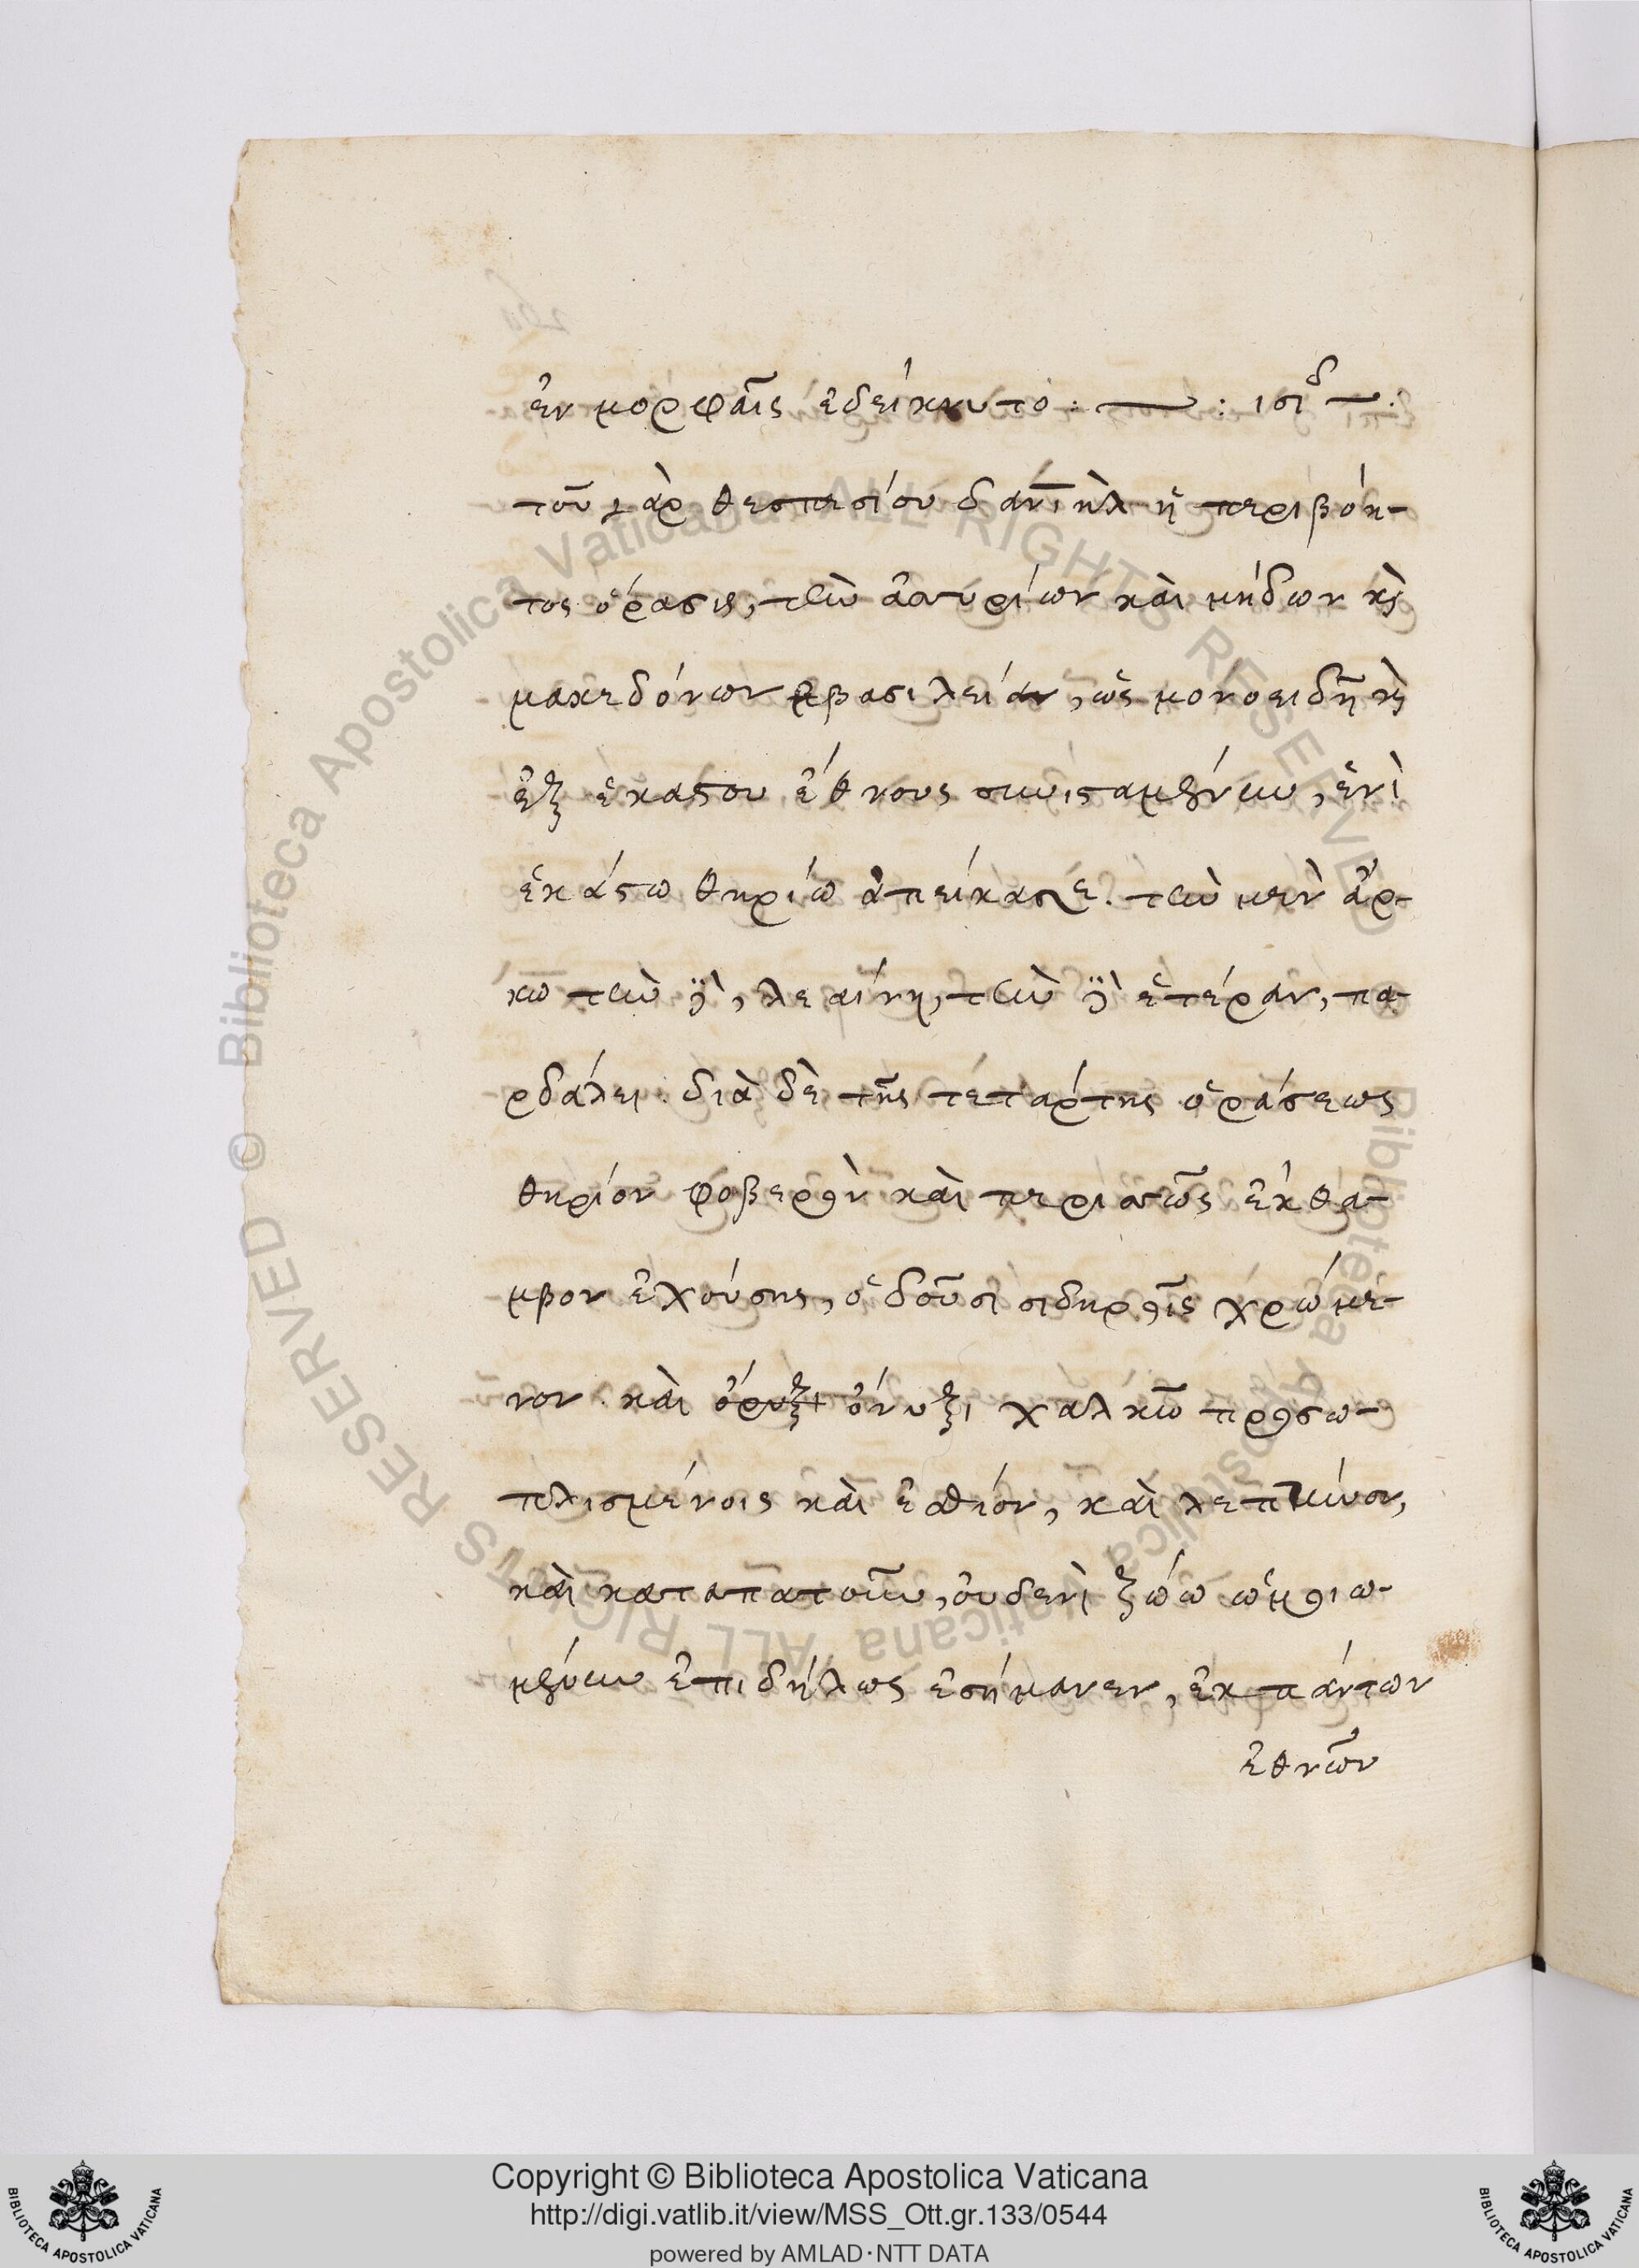 ἐν μορφαῖς ἐδείκνυτο : — : ισιδ —:
τοῦ γὰρ θεσπεσίου δανιὴλ ἡ περιβόη-
τος ὅρασις, τὴν ἀσσυρίων καὶ μήδων κὶ
μακεδόνων βασιλείαν, ὡς μονοειδῆ κὶ
ἐξ ἑκάστου ἔθνους συνισταμένην, ἑνὶ
ἑκάστω θηρίω ἀπείκασε. τὴν μὲν ἄρ-
κω τὴν δὲ, λεαίνη, τὴν δὲ ἑτέραν, πα-
ρδάλει. διὰ δὲ τῆς τετάρτης ὁράσεως
θηρίον φοβερὸν καὶ περισσῶς ἔκθα-
μβον ἐχούσης, ὀδοῦσι σιδηροῖς χρώμε-
νον καὶ ὄρυξι ὄνυξι χαλκῶ προσω-
πλισμένοις καὶ ἐσθίον, καὶ λεπτύνον,
καὶ καταπατοῦν, οὐδενὶ ζώω ὡμοιω-
μένην ἐπιδήλως ἐσήμανεν, ἐκ πάντων
ἐθνῶν
Copyright © Biblioteca Apostolica Vaticana
http://digi.vatlib.it/view/MSS_Ott.gr.133/0544
powered by AMLAD·NTT DATA
BIBLIOTECA APOSTOLICA VATICANA
BIBLIOTECA APOSTOLICA VATICANA
© Biblioteca Apostolica Vaticana ALL RIGHTS RESERVED
© Biblioteca Apostolica Vaticana ALL RIGHTS RESERVED